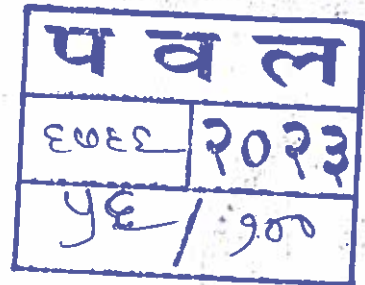 प व ल
६७६६ २०२३
५६ / १००